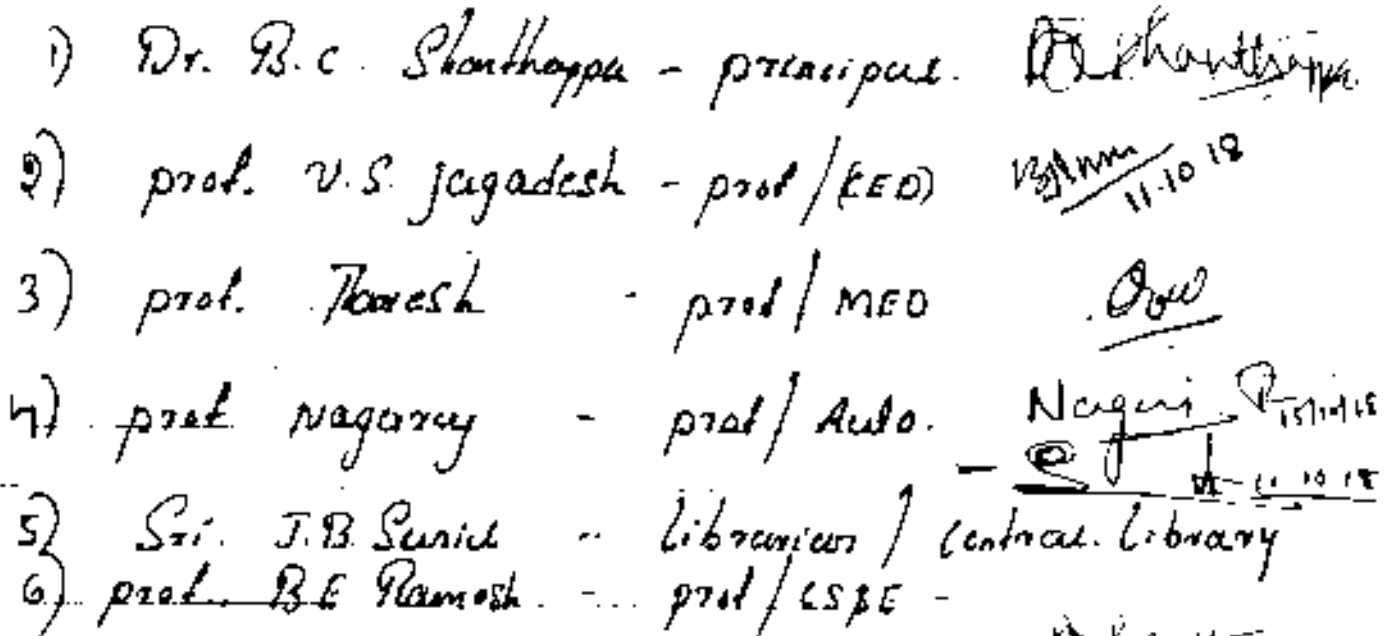 1) Dr. B.C. Shanthappa - principal. Shanthappa
2) prof. V.S. jagadesh - prof/(CED) 11.10.18
3) prof. Haresh - prof/MED
4) prof Nagaraj - prof/Auto. Nagaraj P 15/10/18
11.10.18
5) Sri. J.B. Sunil - Librarian/Central Library
6) prof. B.E Ramesh - prof/CS&E -